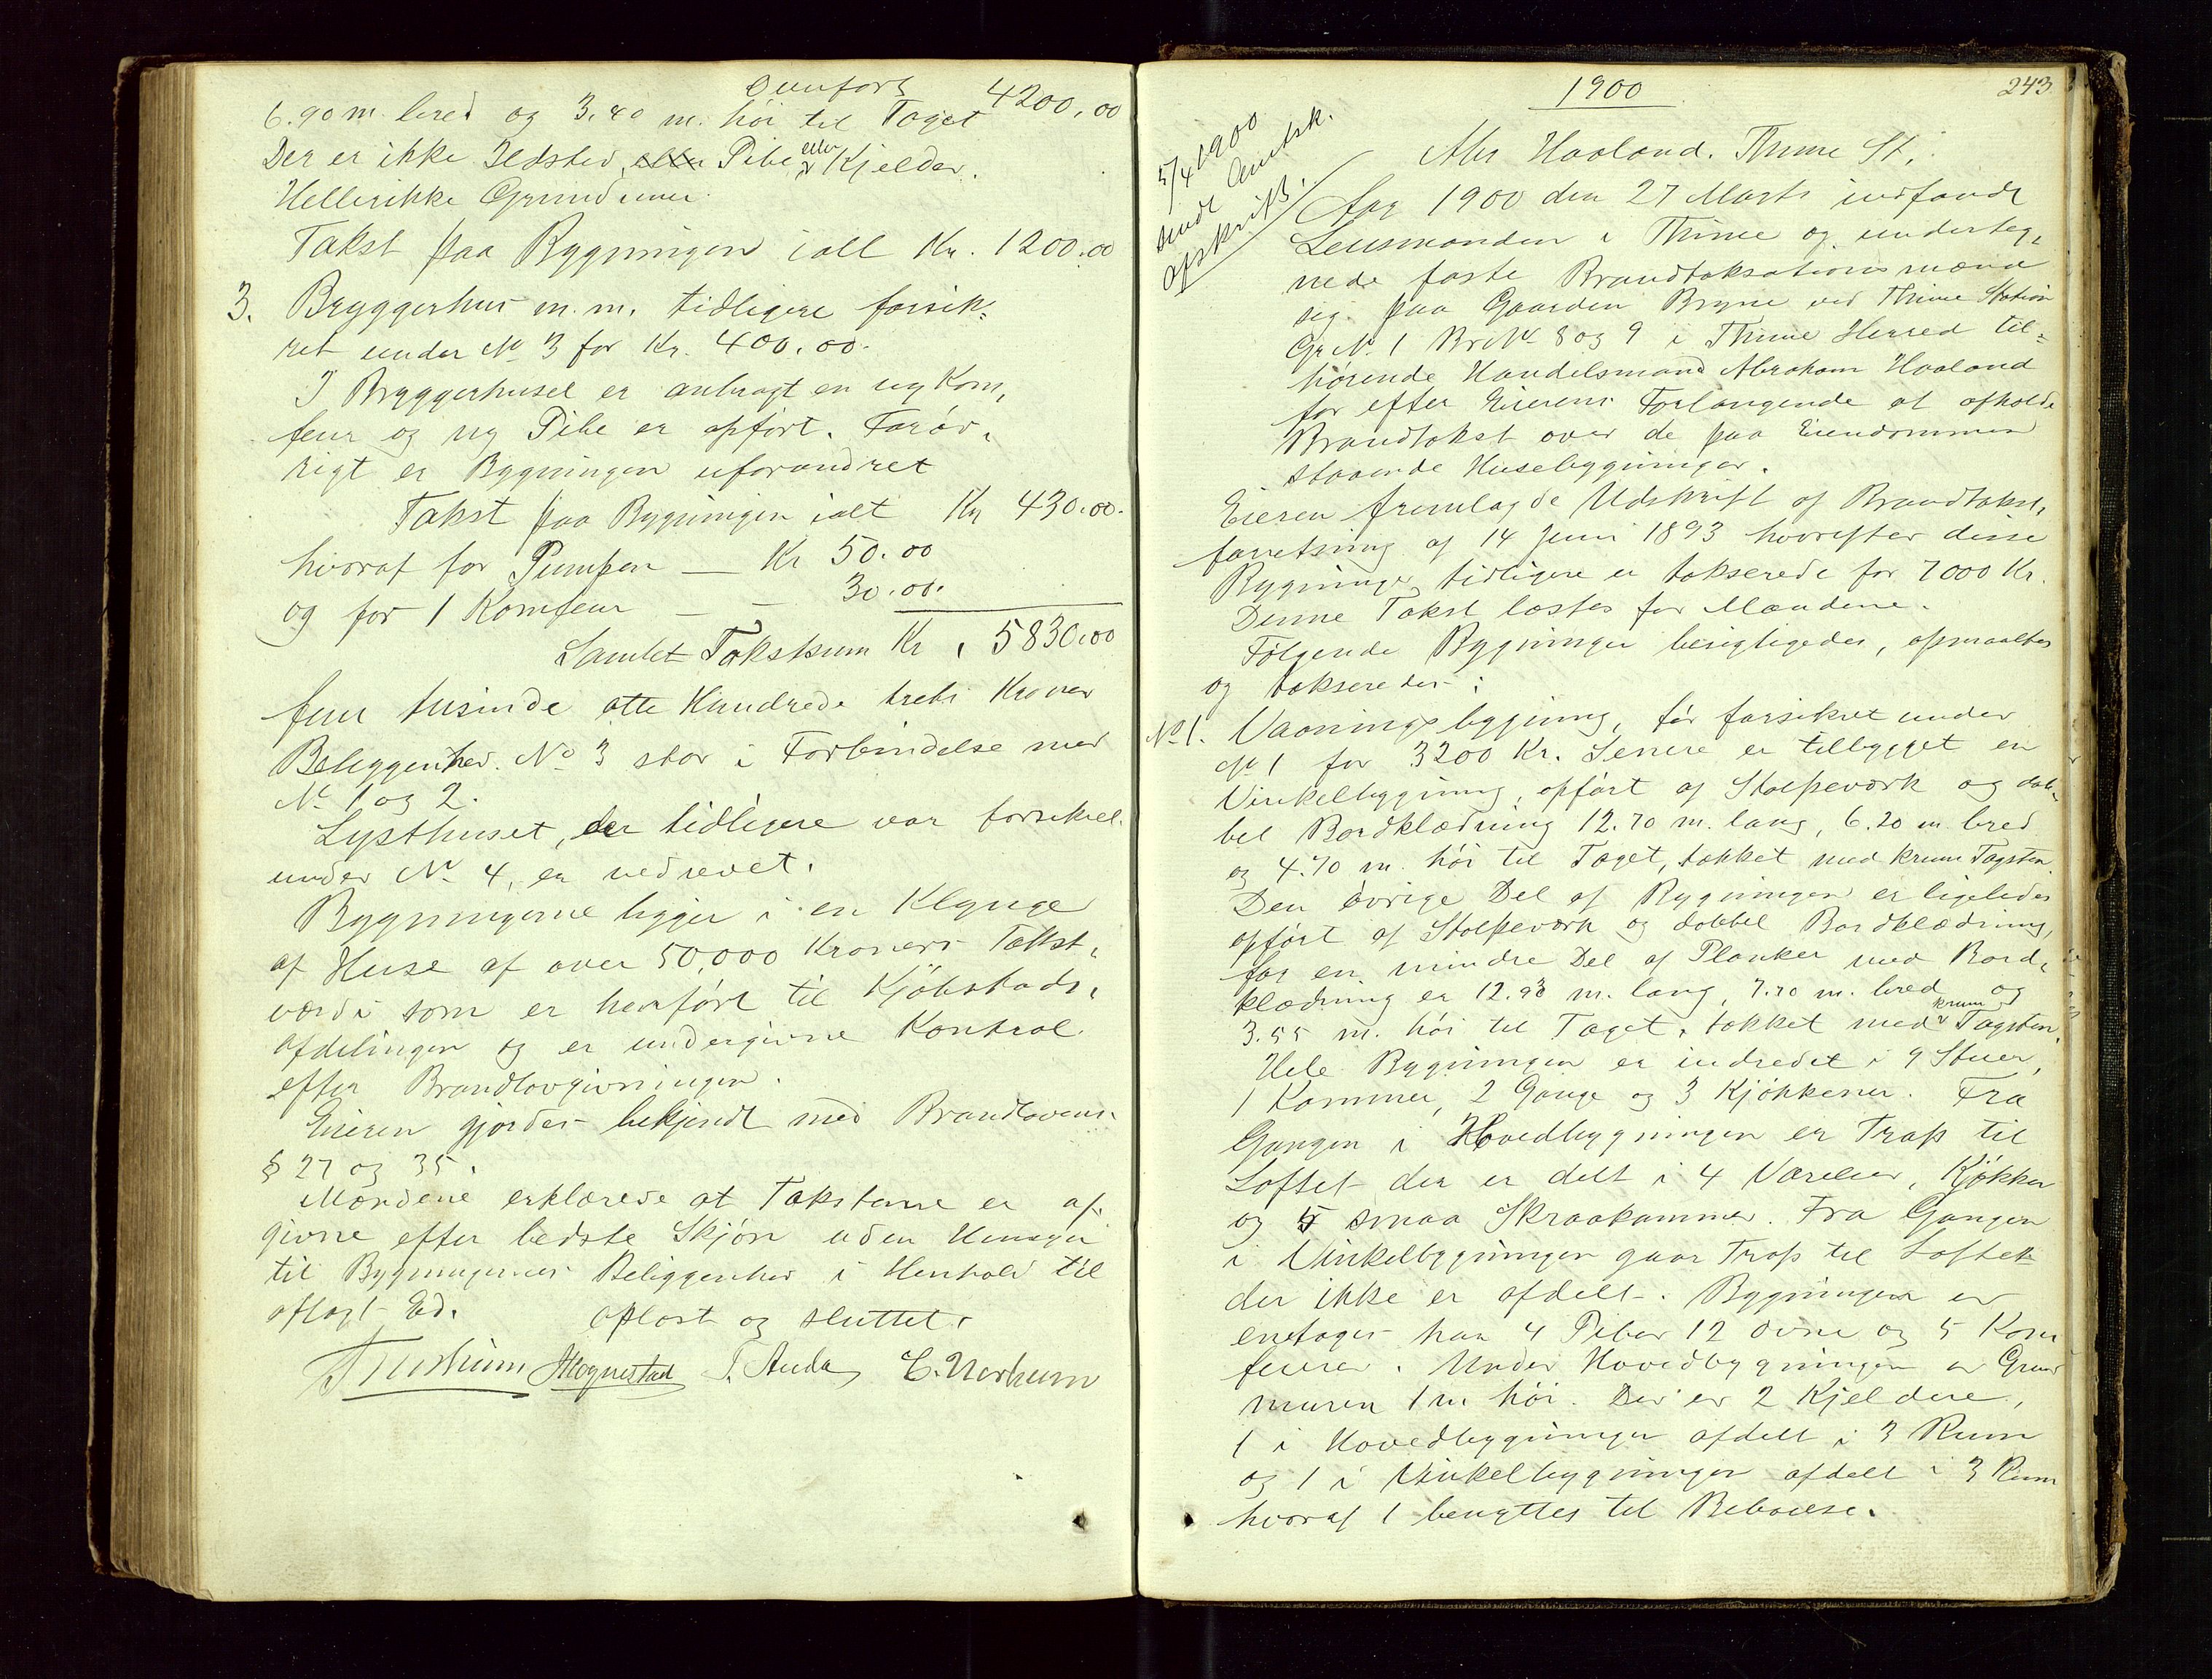 Overført 4200,00
6.90 m. bred og 3,40 m. høi til Taget
Der er ikke Ildsted, eller Pibe eller Kjelder.
Hellerikke Grundmur.
Takst paa Bygningen ialt Kr. 1200.00
3. Bryggerhus m.m. tidligere forsik-
ret under No 3 for Kr. 400.00.
I Bryggerhuset er anbragt en ny Kom,
feur og ny Pibe er opført. Forøv,
rigt er Bygningen uforandret
Takst paa Bygningen ialt Kr 430.00.
hvoraf for Pumpen — Kr 50.00
og for 1 Komfeur — — 30.00.
Samlet Takstsum Kr. 5830.00
fem tusinde otte Hundrede treti Kroner
Beliggenhed. No 3 staar i Forbindelse med
No 1 og 2.
Lysthuset, der tidligere var forsikret
under No 4, er nedrevet.
Bygningerne ligger i en Klynge
af Huse af over 50,000 Kroners Takst,
værdi som er henført til Kjøbstads,
afdelingen og er undergivne Kontrol
efter Brandlovgivningen.
Eieren gjordes bekjendt med Brandlovens
§ 27 og 35.
Mændene erklærede at Taksterne er af,
givne efter bedste Skjøn uden Hensyn
til Bygningernes Beliggenhed i Henhold til
aflagt Ed. Oplæst og sluttet.
Hognestad T. Auda E. Norheim
243
1900
5/4 1900
sendt Amtsk.
Afskrift.
Abr Haaland. Thime St.
Aar 1900 den 27 Marts indfandt
Lensmanden i Thime og underteg,
nede faste Brandtaksationsmænd
sig paa Gaarden Bryne ved Thime Station
Gr No. 1 Br No 8 og 9 i Thime Herred til-
hørende Handelsmand Abraham Haaland
for efter Eierens Forlangende at afholde
Brandtakst over de paa Eiendommen
staaende Husebygninger.
Eieren fremlagde Udskrift af Brandtakst,
forretning af 14 Juni 1893 hvorefter disse
Bygninger tidligere er takserede for 7000 Kr.
Denne Takst læstes for Mændene.
Følgende Bygninger besigtigedes, opmaaltes
og takseredes:
No 1. Vaaningsbygning, før forsikret under
No 1 for 3200 Kr. Senere er tilbygget en
Vinkelbygning, opført af Stolpeværk og dob,
bel Bordklædning 12.70 m. lang, 6.20 m. bred
og 4.70 m. høi til Taget, tækket med krum Tagsten.
Den øvrige Del af Bygningen er ligeledes
opført af Stolpeværk og dobbel Bordklædning,
for en mindre Del af Planker med Bord,
klædning er 12.93 m. lang, 7.70 m. bred og
3.55 m. høi til Taget, tækket med krum Tagsten.
Hele Bygningen er indredet i 9 Stuer,
1 Kammer, 2 Gange og 3 Kjøkkener. Fra
Gangen i Hovedbygningen er Trap til
Loftet der er delt i 4 Værelser, Kjøkken
og 5 smaa Skraakammer. Fra Gangen
i Vinkelbygningen gaar Trap til Loftet
der ikke er afdelt. Bygningen er
enetages har 4 Piber 12 Ovne og 5 Kom
feurer. Under Hovedbygningen er Grund
muren 1 m høi. Der er 2 Kjeldere,
1 i Hovedbygningen afdelt i 3 Rum
og 1 i Vinkelbygningen afdelt i 3 Rum
hvoraf 1 benyttes til Beboelse.